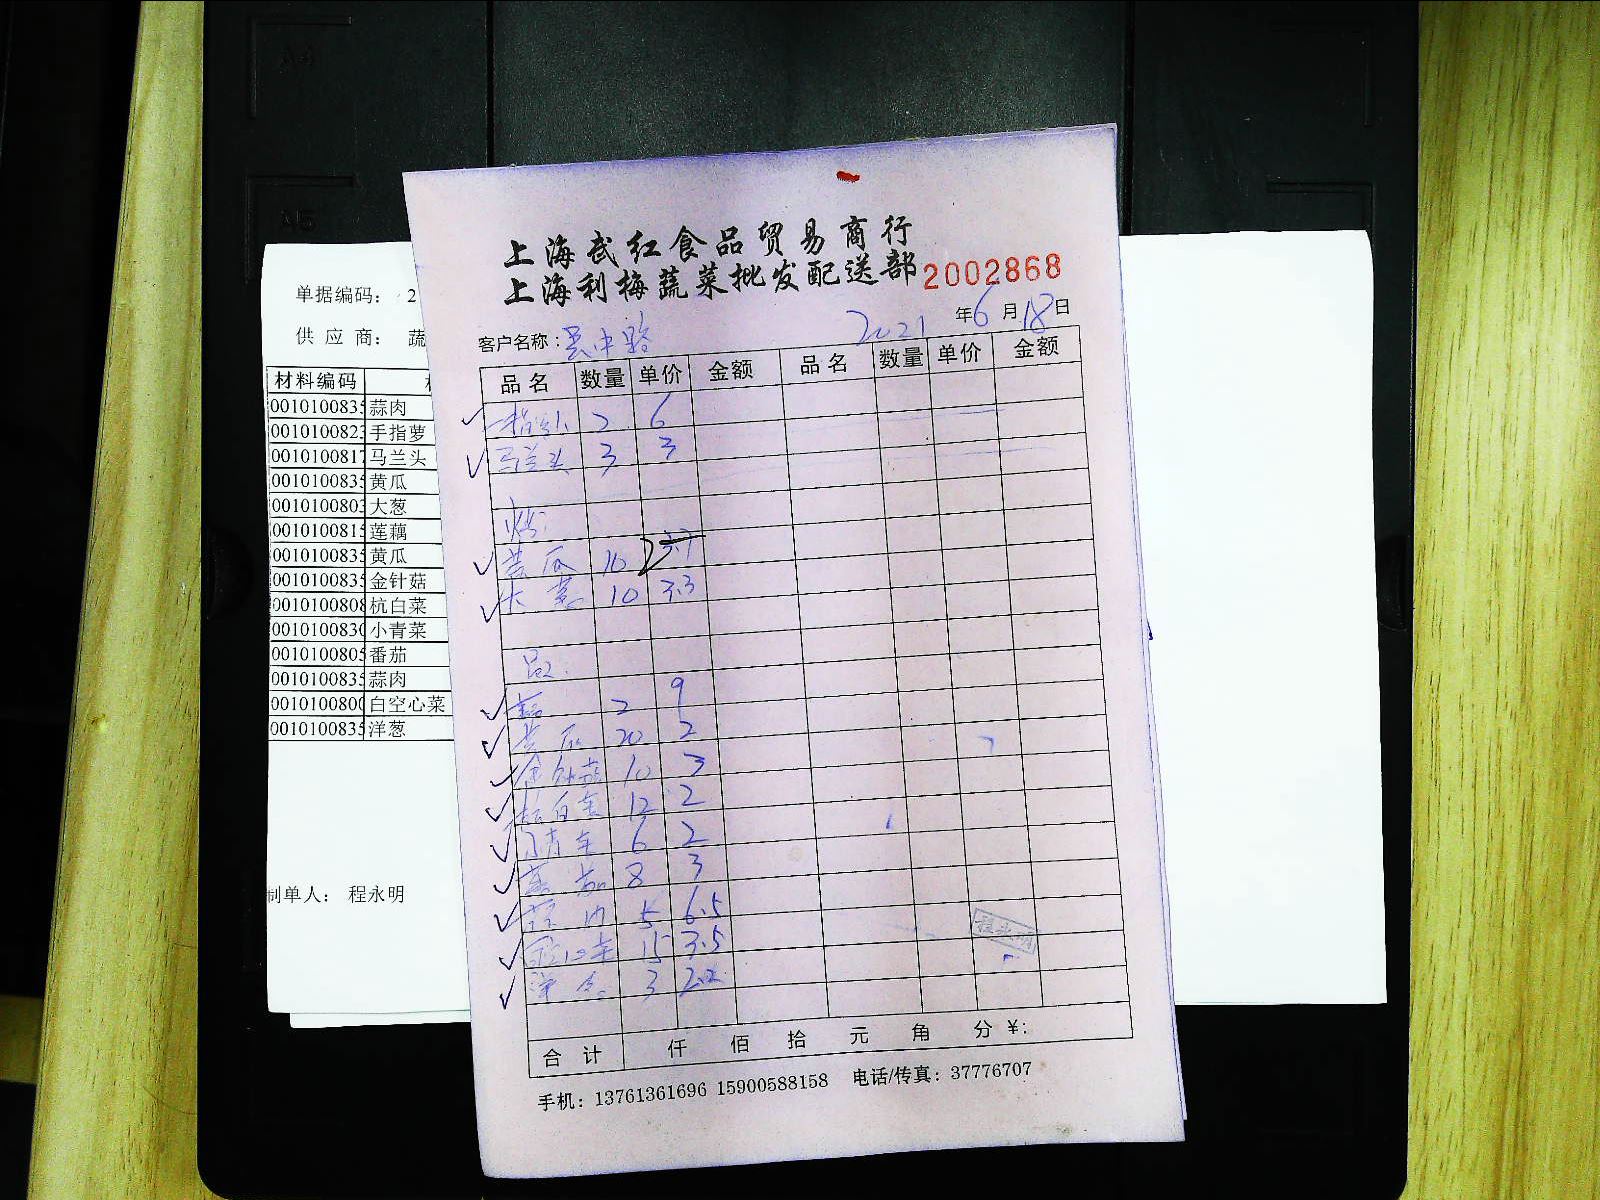 上海武红食品贸易商行
上海利梅蔬菜批发配送部 2002868
2021年6月18日
客户名称：吴中路
品名 数量 单价 金额 品名 数量 单价 金额
2 6
马兰头 3 3
黄瓜 10 3.7
大葱 10 3.3
2 9
黄瓜 20 2
金针菇 10 3
杭白菜 12 2
小青菜 6 2
番茄 8 3
蒜肉 5 6.5
白空心菜 15 3.5
洋葱 3 2.2
程永明
合计 仟 佰 拾 元 角 分 ¥:
手机：13761361696 15900588158 电话/传真：37776707
单据编码： 2
供应商： 蔬
材料编码
0010100835 蒜肉
0010100823 手指萝
0010100817 马兰头
0010100835 黄瓜
0010100803 大葱
0010100815 莲藕
0010100835 黄瓜
0010100835 金针菇
0010100808 杭白菜
0010100830 小青菜
0010100805 番茄
0010100835 蒜肉
0010100800 白空心菜
0010100835 洋葱
制单人： 程永明
A4
A5